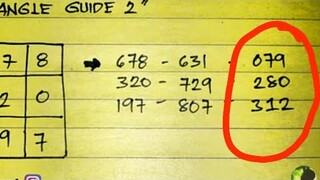 ANGLE GUIDE 2"
7 8 → 678 - 631 - 079
2 0 320 - 729 280
9 7 197 - 807 - 312